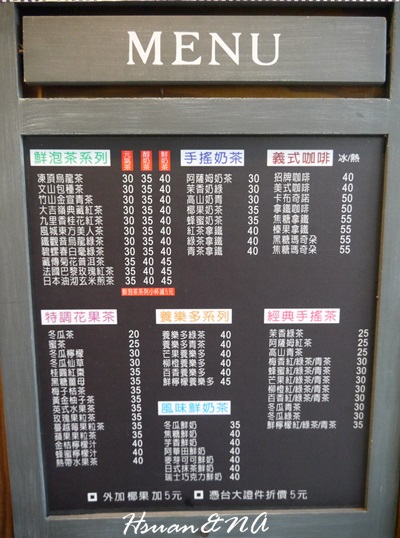 MENU
鮮泡茶系列 元氣茶 醇奶茶 鮮奶茶
凍頂烏龍茶 30 35 40
文山包種茶 30 35 40
竹山金宣青茶 30 35 40
大吉嶺典藏紅茶 30 35 40
九里香桂花紅茶 30 35 40
風城東方美人茶 30 35 40
鐵觀音烏龍綠茶 30 35 40
碧螺春白毫綠茶 30 35 40
藏傳菊花普洱茶 30 35 40
法國巴黎玫瑰紅茶 30 35 40
日本油沏玄米煎茶 30 35 40
鮮泡茶系列小杯減5元
手搖奶茶
阿薩姆奶茶 30
茉香奶綠 30
高山奶青 30
椰果奶茶 35
蜂蜜奶茶 35
紅茶拿鐵 40
綠茶拿鐵 40
青茶拿鐵 40
義式咖啡 冰/熱
招牌咖啡 40
美式咖啡 40
卡布奇諾 50
拿鐵咖啡 50
焦糖拿鐵 55
榛果拿鐵 55
黑糖瑪奇朵 55
焦糖瑪奇朵 55
特調花果茶
冬瓜茶 20
蜜茶 25
冬瓜檸檬 30
冬瓜仙草 30
桂圓紅棗 35
黑糖薑母 35
梅子桔茶 35
黃金柚子茶 35
英式水果茶 35
玫瑰果粒茶 35
蔓越莓果粒茶 35
蘋果果粒茶 35
金桔檸檬汁 40
蜂蜜檸檬汁 40
熱帶水果茶 40
養樂多系列
養樂多綠茶 40
養樂多青茶 40
芒果養樂多 40
柳橙養樂多 40
百香養樂多 40
鮮檸檬養樂多 45
風味鮮奶茶
冬瓜鮮奶 35
焦糖鮮奶 35
芋香鮮奶 40
阿華田鮮奶 40
麥芽可可鮮奶 40
日式抹茶鮮奶 40
瑞士巧克力鮮奶 40
經典手搖茶
茉香綠茶 25
阿薩姆紅茶 25
高山青茶 25
梅香紅/綠茶/青茶 30
蜂蜜紅/綠/青茶 30
芒果紅/綠/青茶 30
柳橙紅/綠/青茶 30
百香紅/綠/青茶 30
冬瓜青茶 30
冬瓜綠茶 30
鮮檸檬紅/綠茶/青茶 35
外加椰果加5元 憑台大證件折價5元
Hsuan&NA